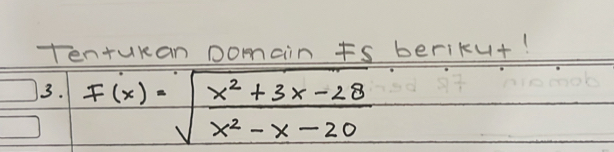 Tentukan Domain Fs berikut!
3. F(x) = √((x² + 3x - 28)/(x² - x - 20))